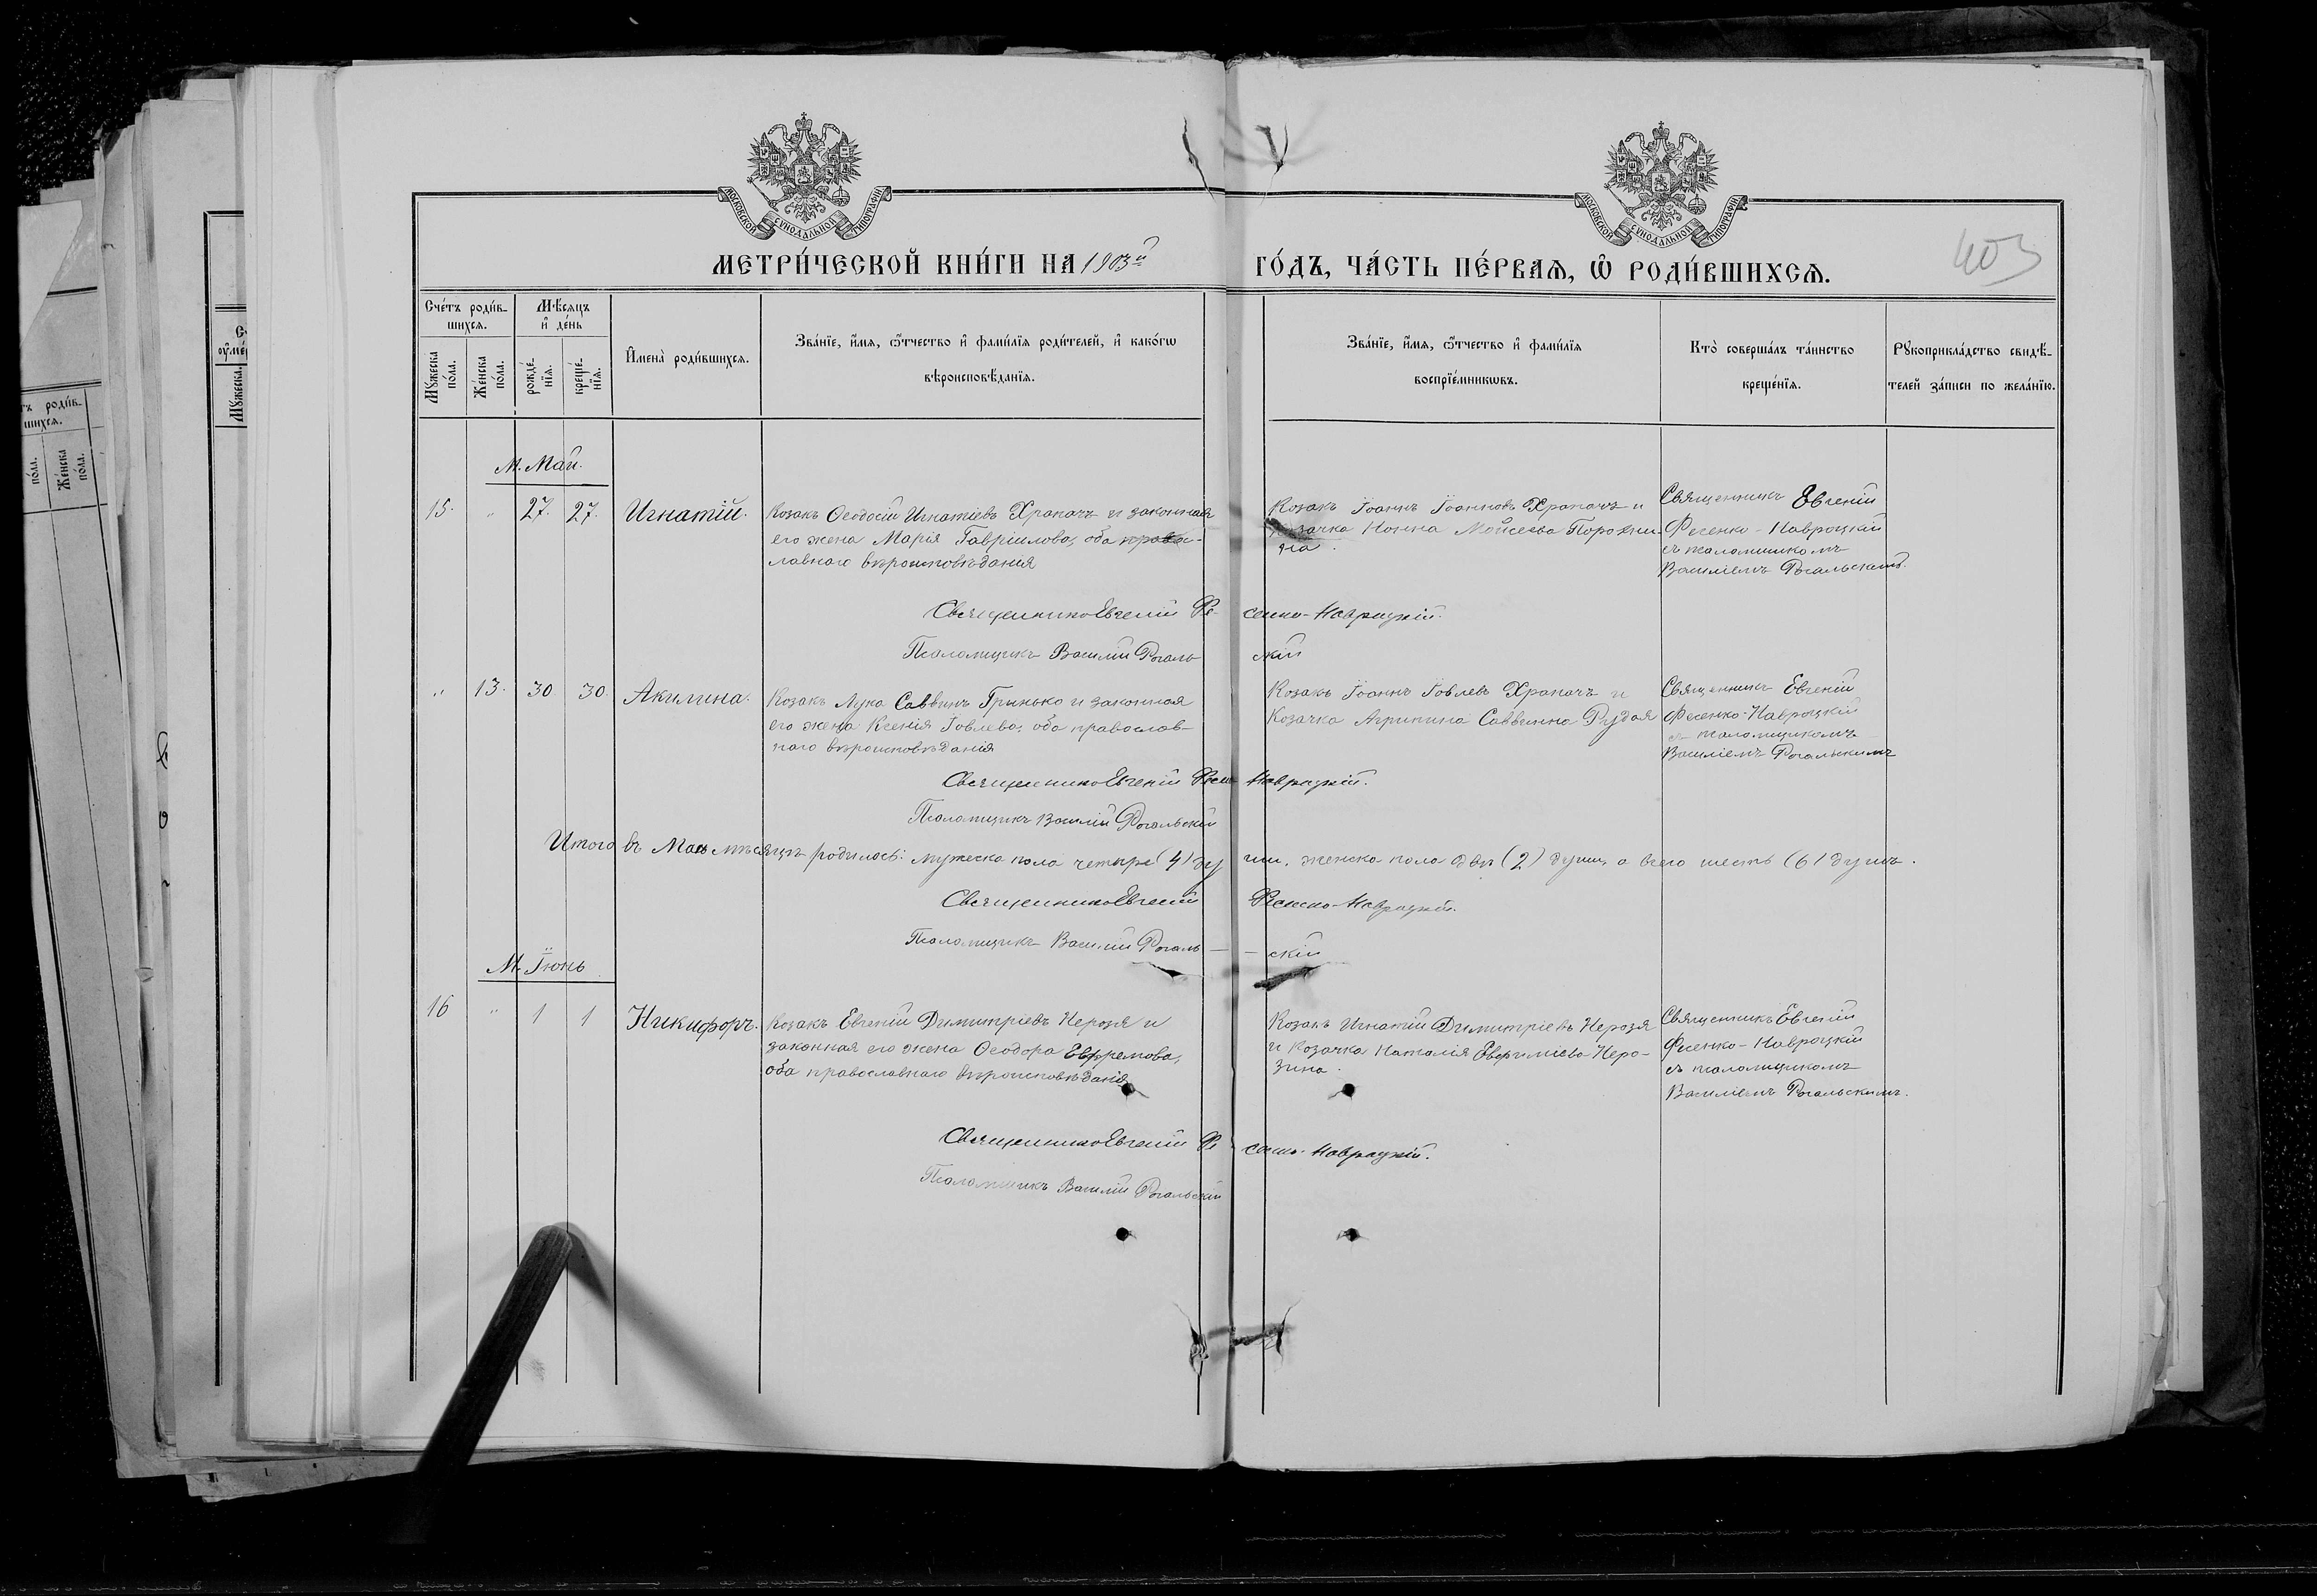 МОСКОВСКОЙ СУНОДАЛЬНОЙ ТИПОГРАФІИ
МОСКОВСКОЙ СУНОДАЛЬНОЙ ТИПОГРАФІИ
МЕТРИ́ЧЕСКОЙ КНИ́ГИ НА 1903й ГО́ДЪ, ЧА́СТЬ ПЕ́РВАѦ, Ѡ РОДИ́ВШИХСѦ.
403
Сче́тъ роди́в-
шихсѧ.
Мѣ́сѧцъ
и҆ де́нь
Мꙋжеска
по́ла.
Же́нска
по́ла.
рожде́-
нїѧ.
креще́-
нїѧ.
И҆мена̀ роди́вшихсѧ.
Зва́нїе, и҆́мѧ, ѻ҆́тчество и҆ фами́лїѧ роди́телей, и҆ како́гѡ
вѣроисповѣ́данїѧ.
Зва́нїе, и҆́мѧ, ѻ҆́тчество и҆ фами́лїѧ
воспрїе́мникѡвъ.
Кто̀ соверша́лъ та́инство
креще́нїѧ.
Рꙋкоприкла́дство свидѣ́-
телей за́писи по жела́нїю.
М. Май.
15. " 27. 27. Игнатій.
Козакъ Ѳеодосій Игнатіевъ Храпачъ и законная
его жена Марія Гавріилова, оба правос-
лавнаго вѣроисповѣданія
Козакъ Іоаннъ Іоанновъ Храпачъ и
козачка Нонна Мойсеева Порохни-
на.
Священникъ Евгеній
Фесенко-Навроцкій
съ псаломщикомъ
Василіемъ Рогальскимъ.
Священникъ Евгеній Фесенко-Навроцкій.
Псаломщикъ Василій Рогальскій
" 13. 30 30. Акилина.
Козакъ Лука Саввинъ Гринько и законная
его жена Ксенія Іовлева, оба православ-
наго вѣроисповѣданія
Козакъ Іоаннъ Іовлевъ Храпачъ и
Козачка Агрипина Саввина Рудая
Священникъ Евгеній
Фесенко-Навроцкій
съ псаломщикомъ
Василіемъ Рогальскимъ
Священникъ Евгеній Фесен Навроцкій.
Псаломщикъ Василій Рогальскій
Итого въ Маѣ мѣсяцѣ родилось: мужеска пола четыре (4) души, женска пола двѣ (2) души, а всего шесть (6) душъ.
Священникъ Евгеній Фесенко-Навроцкій.
Псаломщикъ Василій Рогаль--скій
М. Іюнь
16 " 1 1 Никифоръ.
Козакъ Евгеній Димитріевъ Нерозя и
законная его жена Ѳеодора Евфремова,
оба православнаго вѣроисповѣданія
Козакъ Игнатій Димитріевъ Нерозя
и Козачка Наталія Евфиміева Неро-
зина.
Священникъ Евгеній
Фесенко-Навроцкій
съ псаломщикомъ
Василіемъ Рогальскимъ.
Священникъ Евгеній Фесенко-Навроцкій.
Псаломщикъ Василій Рогальскій